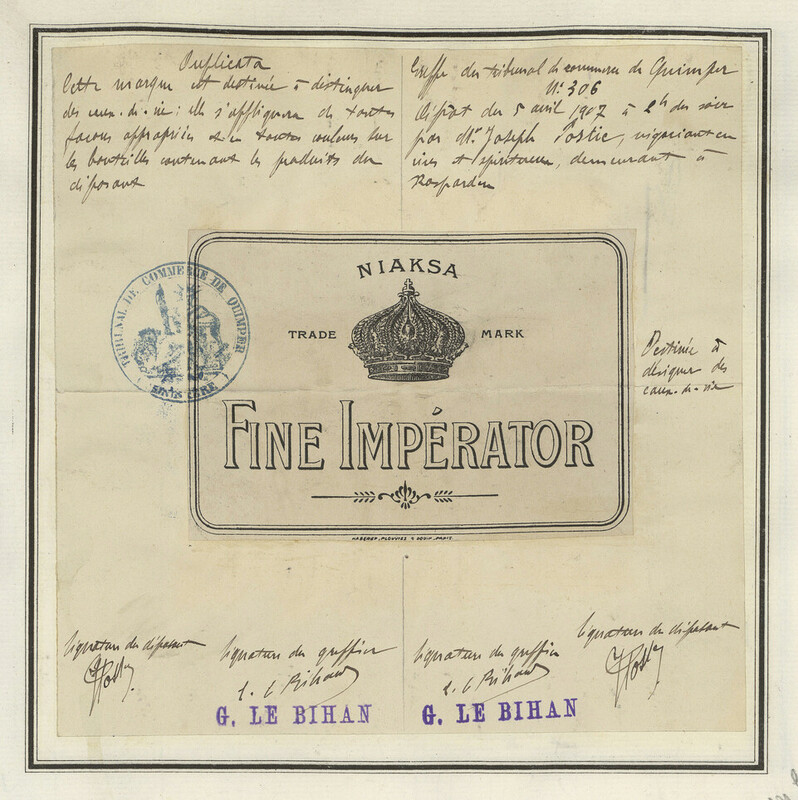 Duplicata
Cette marque est destinée à distinguer
des eaux-de-vie; elle s'appliquera de toutes
façons appropriées et en toutes couleurs sur
les bouteilles contenant les produits du
déposant
Greffe du tribunal de commerce de Quimper
N° 306
Dépôt du 5 avril 1907 à 2h du soir
par Mr Joseph Postic, négociant en
vins et spiritueux, demeurant à
Rosporden
TRIBUNAL DE COMMERCE DE QUIMPER
(FINISTÈRE)
NIAKSA
TRADE MARK
FINE IMPÉRATOR
PARIS
Destinée à
désigner des
eaux-de-vie
Signature du déposant
Signature du greffier
G. LE BIHAN
Signature du greffier
G. LE BIHAN
Signature du déposant